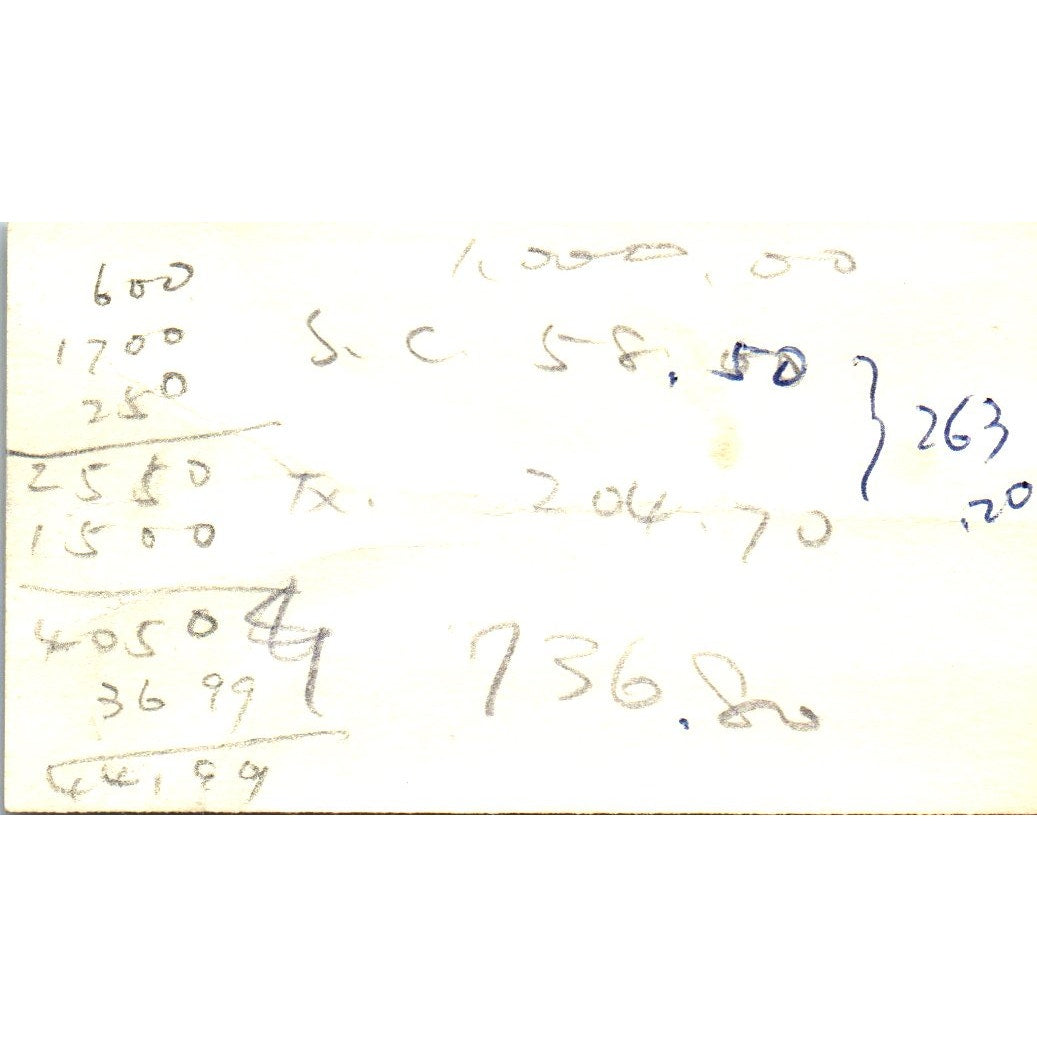 600
1700
250
2550
1500
4050
36 99
44,99
1,000.00
S. C 58.50
Tx. 204.70
263
.20
736.80